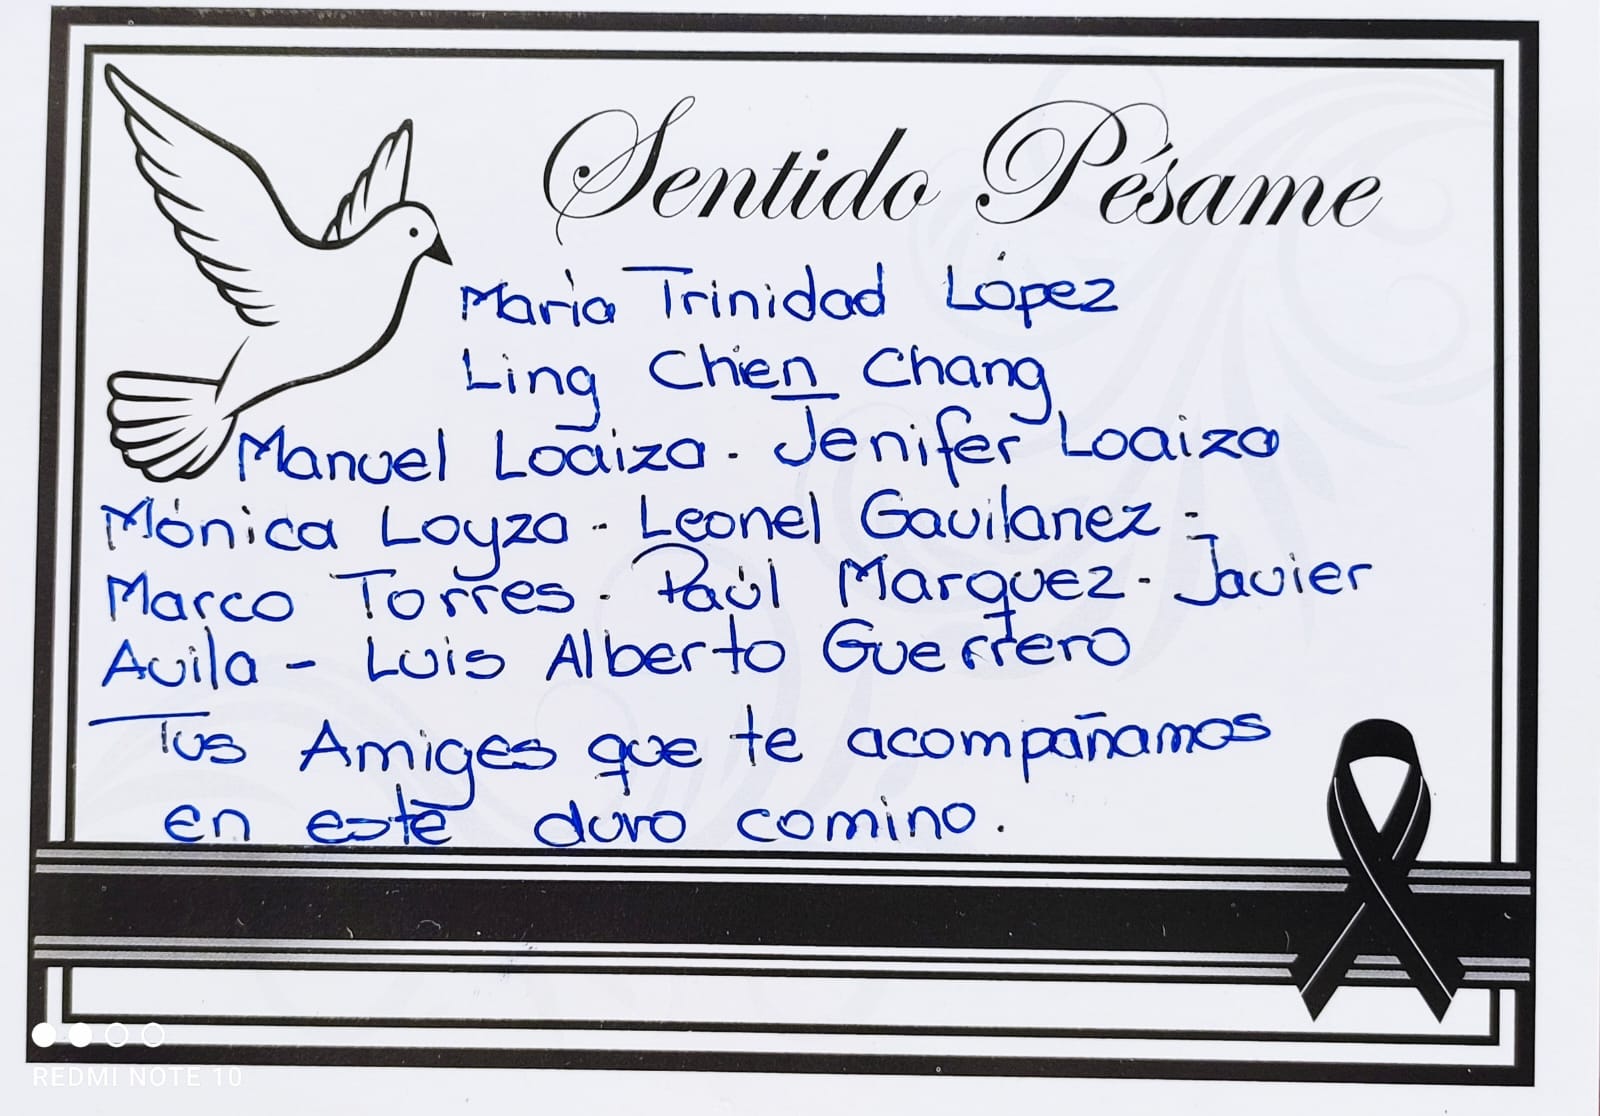 Sentido Pésame
María Trinidad López
Ling Chien Chang
Manuel Loaiza. Jenifer Loaiza
Mónica Loyza - Leonel Gavilanez -
Marco Torres. Paúl Marquez - Javier
Avila - Luis Alberto Guerrero
Tus Amiges que te acompañamos
en este duro comino.
REDMI NOTE 10